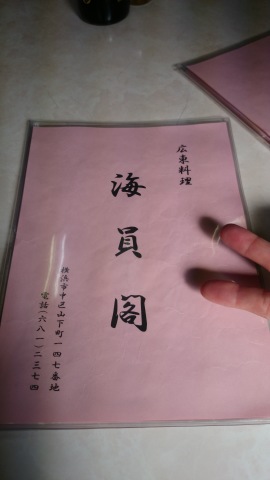 広東料理
海員閣
横浜市中区山下町一四七番地
電話(六八一)二三七四